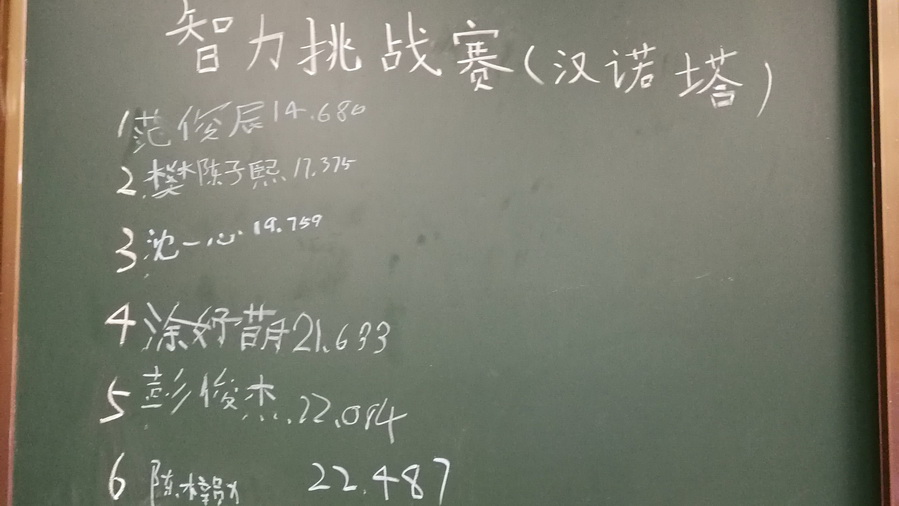 智力挑战赛(汉诺塔)
1范俊辰14.680
2.樊陈子熙.17.375
3沈一心19.759
4涂妤萌21.633
5彭俊杰.22.094
6陈 22.487